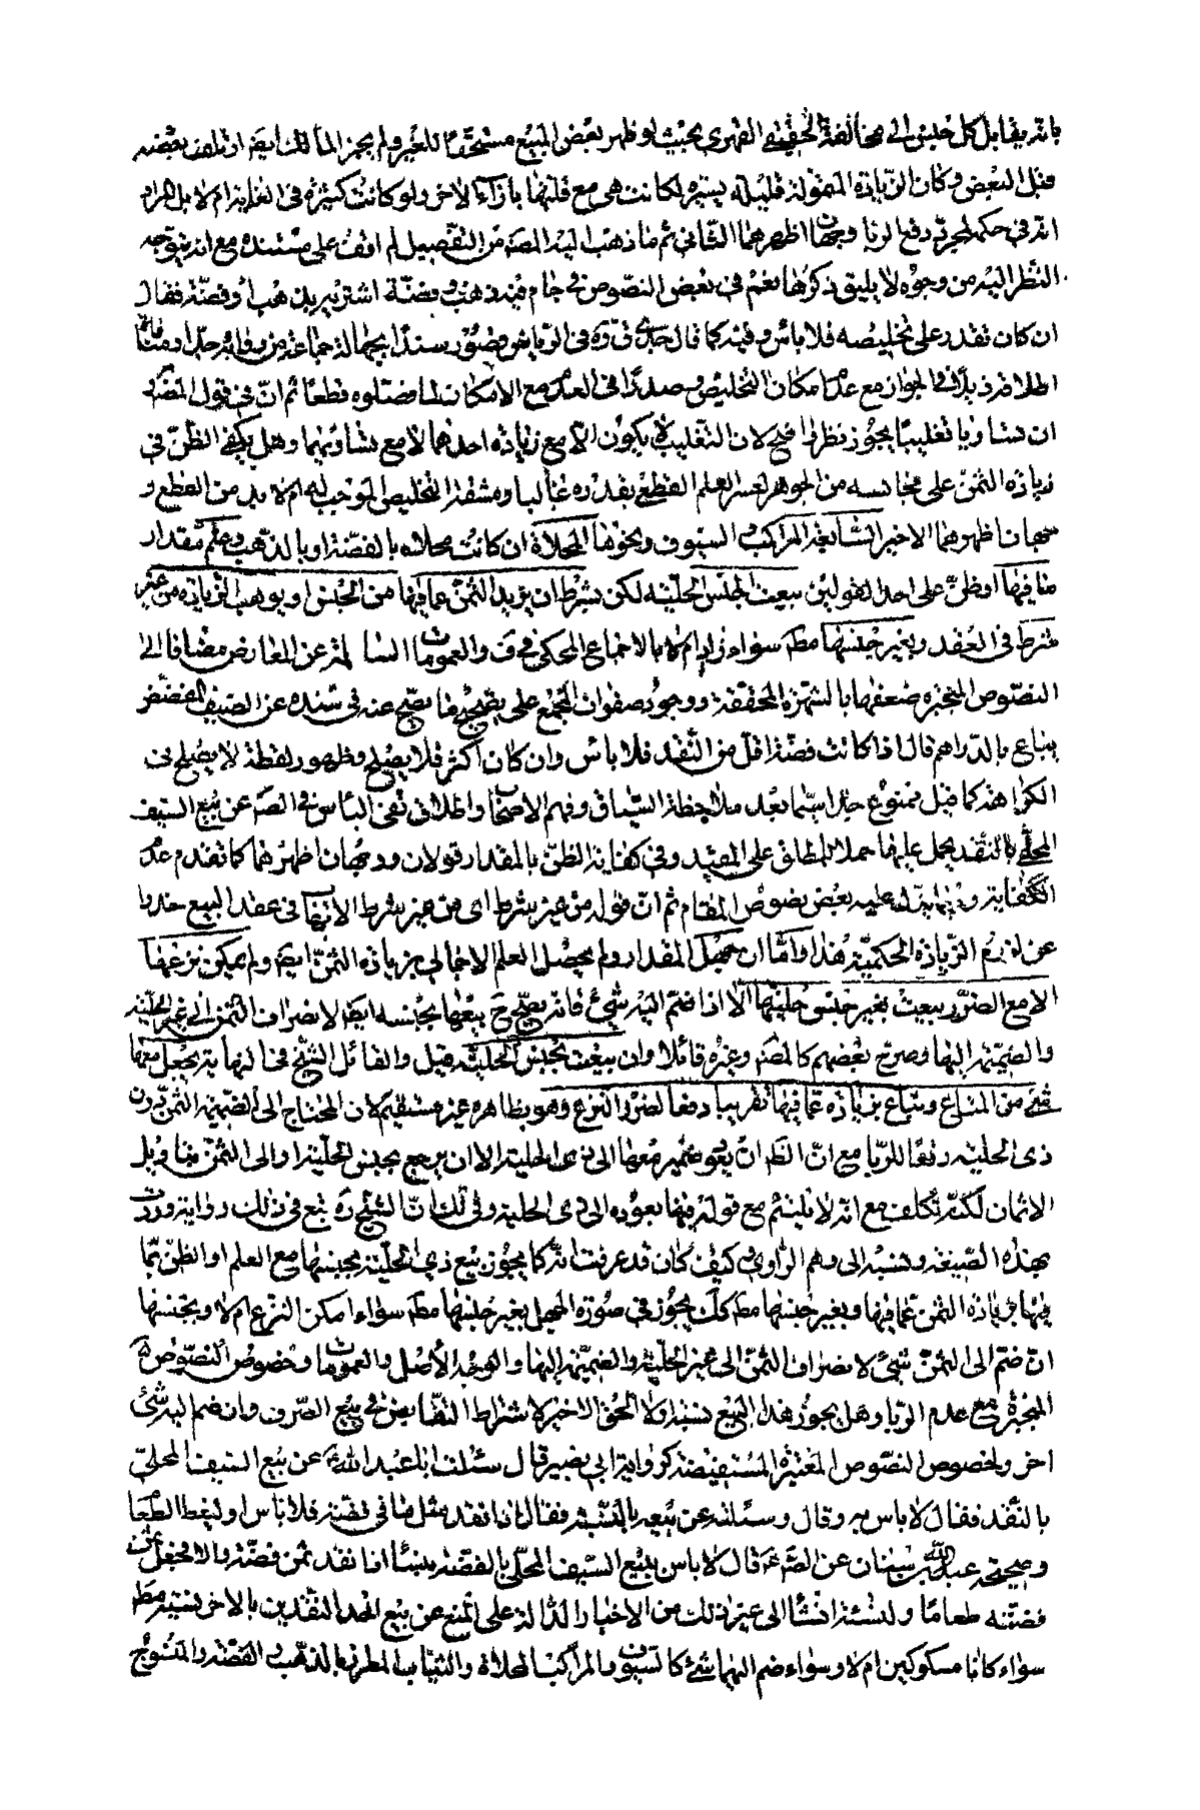 بانه يقابل كل جنس الى مخالفة الحقيقي القهري بحيث لو ظهر بعض المبيع مستحقا للغير ولم يجز المالك ايضا او تلف بعضه
قبل البعض وكان الزيادة المتمولة قليلة يسيرة لكانت هى مع قلتها بازآء الاخر ولو كانت كثيرة فى الغاية ام لا بل المراد
انه فى حكمه لمجرد رفع الربا وجهان اظهرهما الثانى ثم ما ذهب اليه المصه من التفصيل لم اقف على مستنده مع انه يتوجه
النظر اليه من وجوه لا يليق ذكرها نعم فى بعض النصوص فى جام فيه ذهب وفضة اشتريه بذهب او فضة فقال
ان كان تقدر على تخليصه فلا باس وفيه كما قال جدى قده فى الرياض
اطلاقه فى الجواز مع عدم امكان التخليص وصدرا فى العدم مع الامكان لما فصلوه قطعا ثم ان فى قول المصه
ان تساويا تغليبا يجوز نظر واضح لان التغليب لا يكون الا مع زيادة احدهما لا مع تساويهما وهل يكفى الظن فى
زيادة الثمن على مجانسه من الجوهر لعسر العلم القطع بقدره غالبا ومشقة التخليص الموجب له ام لا بد من القطع و
جهان اظهرهما الاخير السابعة المراكب والسيوف ونحوها المحلاة ان كانت محلاة بالفضة او بالذهب وعلم مقدار
ما فيها او ظن على احد القولين بيعت بجنس الحلية لكن بشرط ان يزيد الثمن عما فيها من الجنس او يوهب الزيادة من غير
شرط فى العقد وبغير جنسها مطه سواء زاد ام لا بالاجماع المحكى فى ف والعمومات السالمة عن المعارض مضافا الى
النصوص المنجبر ضعفها بالشهرة المحققة ووجود صفوان المجمع على تصحيح ما يصح عنه فى سنده عن السيف المفضض
يباع بالدراهم قال اذا كانت فضة اقل من النقد فلا باس وان كان اكثر فلا يصلح وظهور لفظة لا يصلح فى
الكراهة كما قيل ممنوع جدا سيما بعد ملاحظة السياق وفهم الاصحاب واطلاق نفى الباس فى الصه عن بيع السيف
المحلى بالنقد يحمل عليها حملا للمطلق على المقيد وفى كفاية الظن بالمقدار قولان ووجهان اظهرهما كما تقدم عدم
الكفاية عليه بعض نصوص المقام ثم ان قوله من غير شرط اى من غير شرط الاتهاب فى عقد البيع حذرا
عن لزوم الزيادة الحكمية هذا واما ان جهل المقدار ولم يحصل العلم الاجمالى بزيادة الثمن ايضا ولم يمكن نزعها
الا مع الضرر بيعت بغير جنس حليتها الا اذا ضم اليه شئ فانه يصح ح بيعها بجنسه ايضا لانصراف الثمن الى غير الحلية
والضميمة اليها وصرح بعضهم كالمصه وغيره قائلا وان بيعت بجنس الحلية قيل والقائل الشيخ فى النهاية يجعل معها
شئ من المتاع وتباع بزيادة عما فيها تقريبا دفعا لضرر النزع وهو بظاهره غير مستقيم لان المحتاج الى الضميمة الثمن دون
ذى الحلية دفعا للربا مع ان الظ ان يعود ضمير معها الى ذى الحلية الا ان يرجع بجنس الحلية او الى الثمن مما قبل
الاثمان لكنه تكلف مع انه لا يلتئم مع قوله فيها بعوده الى ذى الحلية وفى لك ان الشيخ ره تبع فى ذلك رواية وردت
بهذه الصيغة ونسبه الى وهم الراوى وكيف كان قد عرفت انه كما يجوز بيع ذى الحلية بجنسها مع العلم او الظن بما
فيها بزيادة الثمن عما فيها وبغير جنسها مطه كك يجوز فى صورة الجهل بغير جنسها مطه سواء امكن النزع ام لا وبجنسها
ان ضم الى الثمن شئ لانصراف الثمن الى غير الحلية والضميمة اليها والوجه الاصل والعمومات وخصوص النصوص
المنجبرة مع عدم الربا وهل يجوز هذا البيع نسية لا الحق الاخير لاشتراط التقابض فى بيع الصرف وان ضم اليه شئ
اخر ولخصوص النصوص المعتبرة المستفيضة كرواية ابى بصير قال سئلت ابا عبد الله ع عن بيع السيف المحلى
بالنقد فقال لا باس به وقال وسئلته عن بيعه بالنسية فقال اذا نقد مثل ما فى فضته فلا باس او ليعط الطعام
وصحيحة عبد الله بن سنان عن الصه ع قال لا باس ببيع السيف المحلى بالفضة بنسأ اذا نقد ثمن فضته والا فاجعل ثمن
فضته طعاما ولينسئه ان شآ الى غير ذلك من الاخبار الدالة على المنع عن بيع احد النقدين بالاخر نسية مطه
سواء كانا مسكوكين ام لا وسواء ضم اليهما شئ كالسيوف والمراكب المحلاة والثياب المطرزة بالذهب والفضة والمنسوج